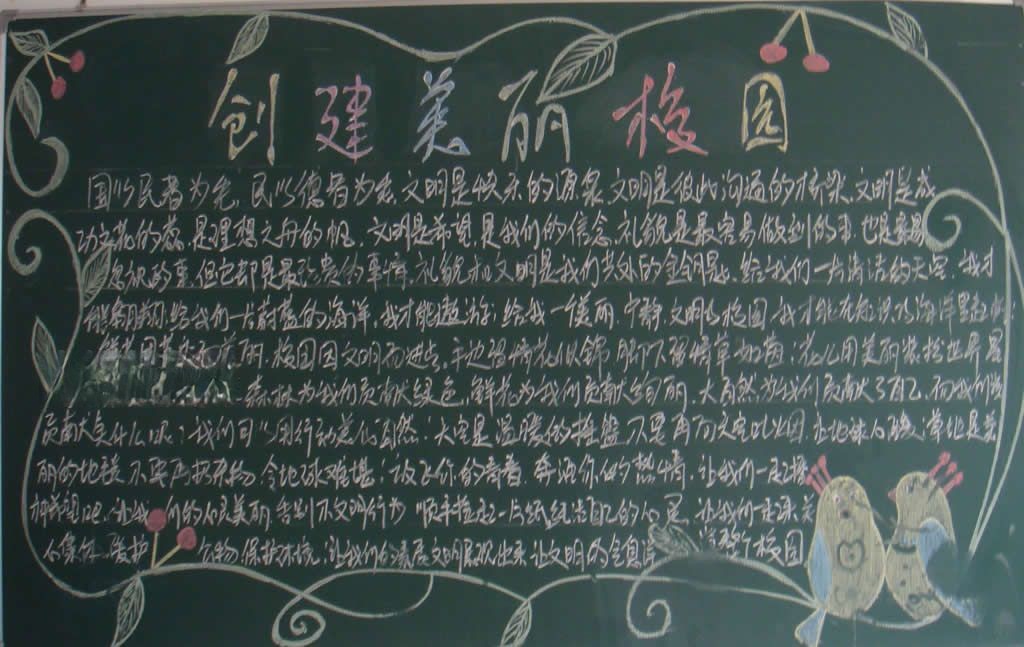 创建美丽校园
国以民為先，民以德為本，文明是快乐的源泉，文明是彼此沟通的桥梁，文明是成
功之花的蕊，是理想之舟的帆，文明是希望，是我们的信念，礼貌是最容易做到的事，也是最易
忽视的事，但它却是最珍贵的事情，礼貌和文明是我们共处的金钥匙，给我们一片清洁的天空，我才
能翱翔；给我们一片蔚蓝的海洋，我才能遨游；给我一个美丽、宁静、文明的校园，我才能在知识的海洋里
美丽，校园因文明而进步，手边留情花似锦，脚下留情草如茵；花儿用美丽装扮世界
森林为我们贡献绿色，鲜花为我们贡献绚丽，大自然为我们贡献了自己，而我们
贡献点什么呢？我们可以用行动美化自然，大空是温暖的摇篮，不要再
丽的地毯，不要再扔弃物，令地球难堪；放飞你的青春，奔洒你的热情，让我们一起
吧，让我们的心灵美丽，告别不文明行为，顺手捡起一片纸纯洁自己的心灵，让我们
集体，爱护公物，保护环境，让我们的素质文明展现出来，让文明的气息 整个校园